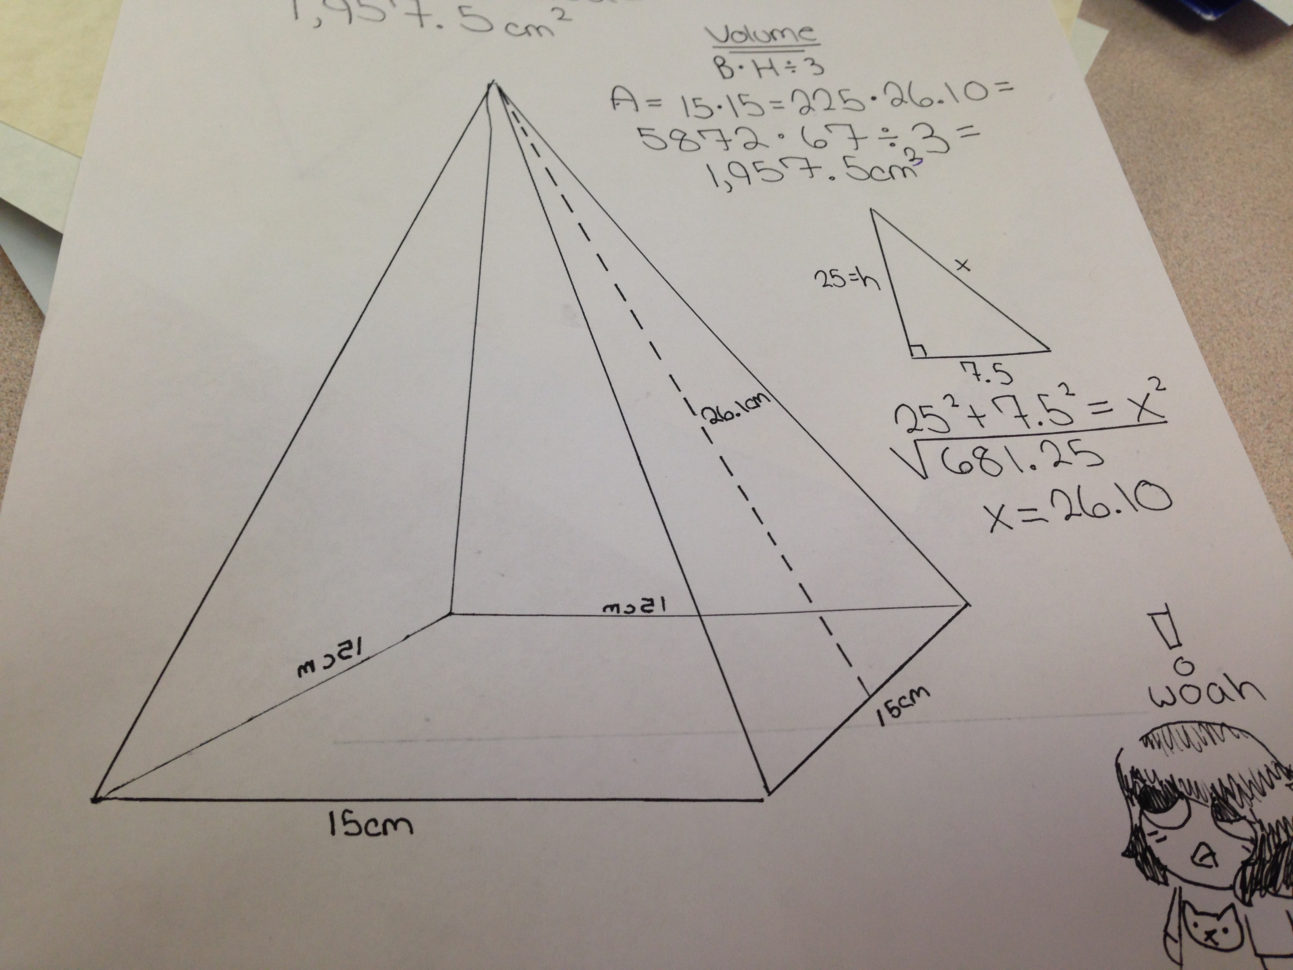 1,957.5cm²
Volume
B·H÷3
A= 15·15=225·26.10=
5872·67÷3=
1,957.5cm³
25=h
x
7.5
25²+7.5²=x²
√681.25
x=26.10
26.1cm
15cm
15cm
15cm
15cm
!
woah